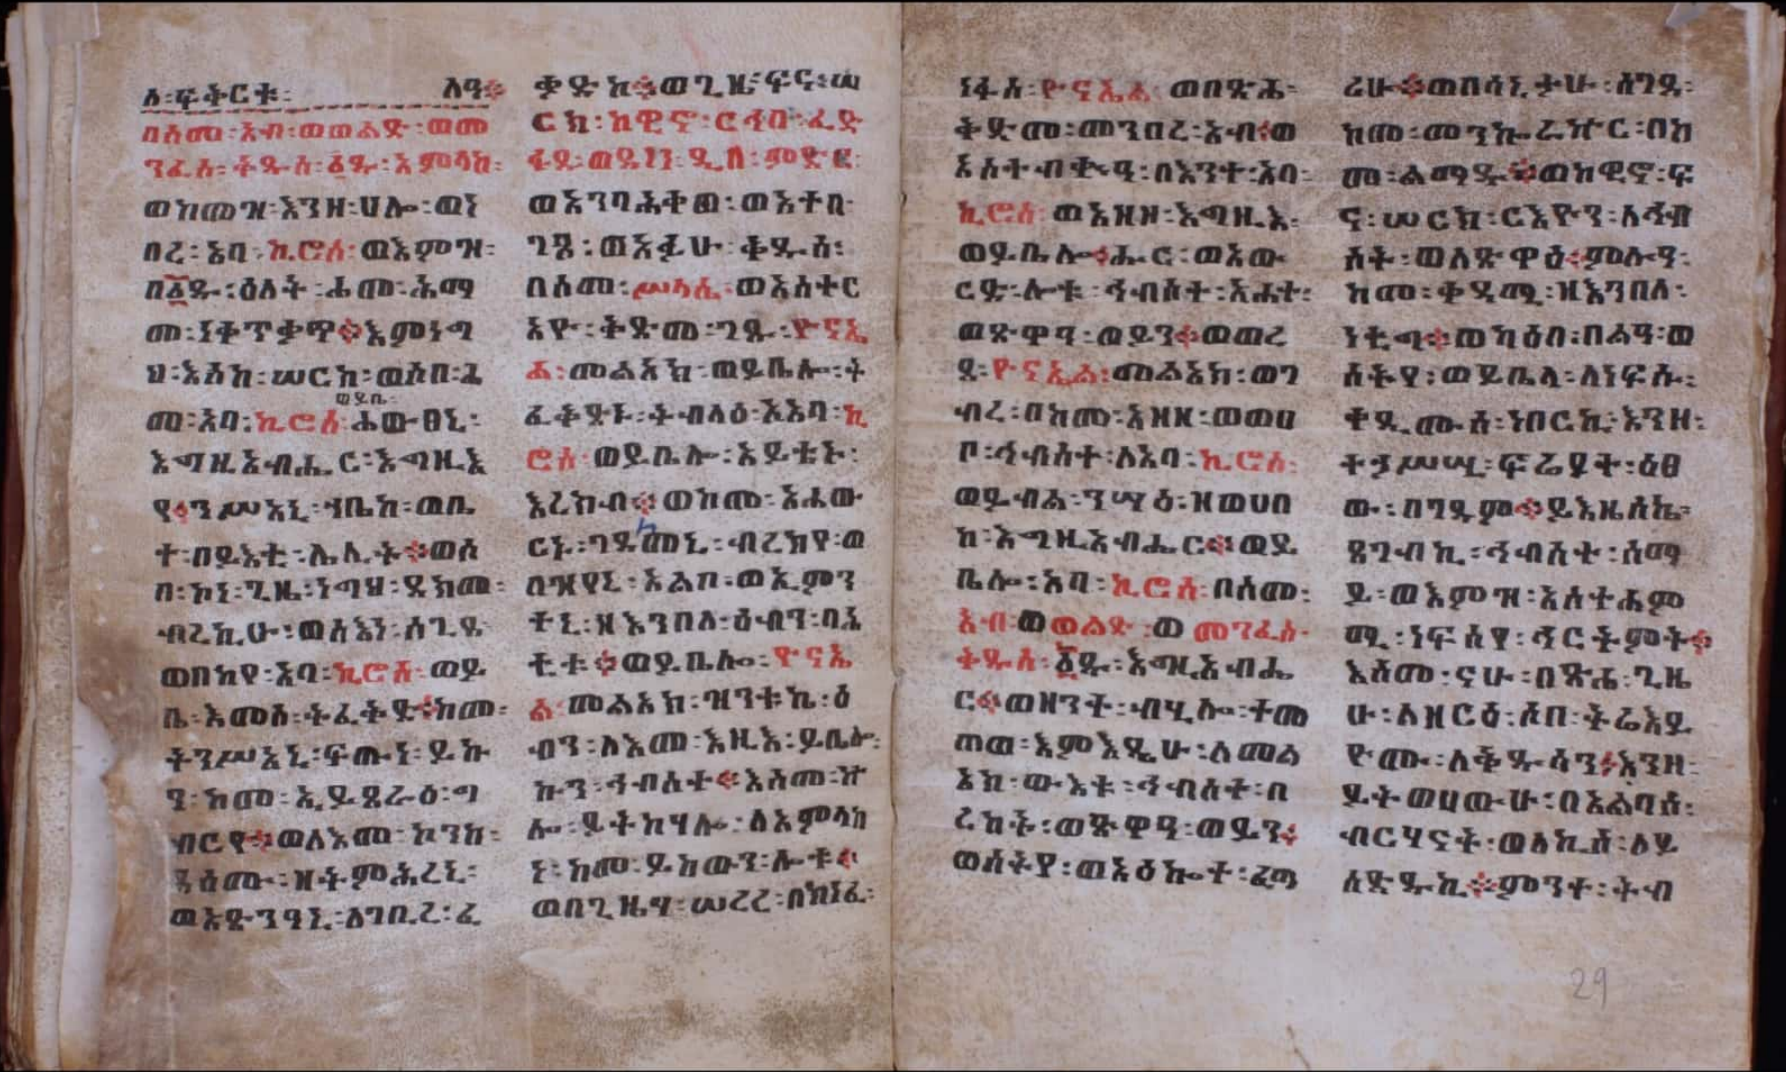 ለ፡ፍትርቱ፡ ለዓ፨
በስመ፡አብ፡ወወልድ፡ወመ
ንፈስ፡ቅዱስ፡፩ዱ፡አምላክ፡
ወከመዝ፡እንዘ፡ሀሎ፡ወነ
በረ፡አባ፡ኪሮስ፡ወእምዝ፡
በ፩ዱ፡ዕለት፡ሐመ፡ሕማ
መ፡ነቅጥቃጥ፨እምነግ
ህ፡እስከ፡ሠርክ፡ወሶበ፡ፈ
ወይቤ፡
መ፡አባ፡ኪሮስ፡ሐውፀኒ፡
እግዚአብሔር፡እግዚእ
የ፨ንሥአኒ፡ኀቤከ፡ወቤ
ተ፡በይእቲ፡ሌሊት፨ወሶ
በ፡ኮነ፡ጊዜ፡ነግህ፡ደክመ፡
ብረኪሁ፡ወአኀነ፡ሰጊደ
ወበከየ፡አባ፡ኪሮስ፡ወይ
ቤ፡እመሰ፡ትፈቅድ፨ከመ፡
ትንሥአኒ፡ፍጡነ፡ይኩ
ን፡ከመ፡ኢይጸራዕ፡ግ
ብርየ፨ወለእመ፡ኮንከ፡
ዛዕሙ፡ዘትምሕረኒ፡
ወእድኅዓኒ፡ለገቢረ፡ፈ
ቃድከ፨ወጊዜ፡ፍና፡ሠ
ርክ፡ከዊኖ፡ርኅበ፡ፈድ
ፋደ፡ወደንገ፡ዲበ፡ምድር፡
ወአንባሕቅወ፡ወአተበ፡
ገጾ፡ወእፉሁ፡ቅዱስ፡
በስመ፡ሥላሴ፡ወአስተር
አዮ፡ቅድመ፡ገጹ፡ዮናኤ
ል፡መልአክ፡ወይቤሎ፡ት
ፈቅድኑ፡ትብላዕ፡እአባ፡ኪ
ሮስ፡ወይቤሎ፡አይቴኑ፡
እረክብ፨ወከመ፡አሐው
ርኑ፡ገዳመኒ፡ብረክየ፡ወ
ስዝየኒ፡አልቦ፡ወኢምን
ተኒ፡ዘእንበለ፡ዕብን፡ባሕ
ቲቱ፨ወይቤሎ፡ዮናኤ
ል፡መልአክ፡ዝንቱኬ፡ዕ
ብን፡ለእመ፡እዚአ፡ይቤሎ፡
ኩን፡ኅብስተ፨እስመ፡ኵ
ሎ፡ይትከሃሎ፡ለአምላክ
ነ፡ከመ፡ይከውን፡ሎቱ፨
ወበጊዜሃ፡ሠረረ፡በክነፈ፡
ነፋስ፡ዮናኤል፡ወበጽሐ፡
ቅድመ፡መንበረ፡አብ፨ወ
አስተብቍዓ፡በእንተ፡አባ፡
ኪሮስ፡ወአዘዘ፡እግዚእ፡
ወይቤሎ፨ሑር፡ወአው
ርድ፡ሎቱ፡ኅብስተ፡አሐተ፡
ወጽዋዓ፡ወይን፨ወወረ
ደ፡ዮናኤል፡መልአክ፡ወገ
ብረ፡በከመ፡አዘዘ፡ወወሀ
ቦ፡ኅብስተ፡ለአባ፡ኪሮስ፡
ወይብል፡ንሣዕ፡ዝወሀበ
ከ፡እግዚአብሔር፨ወይ
ቤሎ፡አባ፡ኪሮስ፡በስመ፡
አብ፡ወወልድ፡ወመንፈስ፡
ቅዱስ፡፩ዱ፡እግዚአብሔ
ር፨ወዘንተ፡ብሂሎ፡ተመ
ጠወ፡እምእዴሁ፡ለመል
አክ፡ውእቱ፡ኅብስተ፡በ
ረከት፡ወጽዋዓ፡ወይን፨
ወሰትየ፡ወአዕኰተ፡ፈጣ
ሪሁ፨ወበሳኒታሁ፡ሰገዱ፡
ከመ፡መንኰራኵር፡በከ
መ፡ልማዱ፨ወከዊኖ፡ፍ
ና፡ሠርክ፡ርእዮን፡ለኅብ
ስት፡ወለጽዋዕ፨ምሉዓ፡
ከመ፡ቀዳሚ፡ዘእንበለ፡
ነቲግ፨ወካዕበ፡በልዓ፡ወ
ሰትየ፡ወይቤላ፡ለነፍሱ፡
ቀዲሙሰ፡ነበርኪ፡እንዘ፡
ተኃሥሢ፡ፍሬያተ፡ዕፀ
ው፡በገዳም፨ይእዜሰኬ፡
ጸገብኪ፡ኅብስተ፡ሰማ
ይ፡ወእምዝ፡አስተሐም
ሚ፡ነፍስየ፡ኅርትምት፨
እስመ፡ናሁ፡በጽሐ፡ጊዜ
ሁ፡ለዘርዕ፡ሶበ፡ትሬእይ
ዮሙ፡ለቅዱሳን፨እንዘ፡
ሂትወሀውሁ፡በአልባሰ፡
ብርሃናት፡ወለኪሰ፡ለሃ
ለድዱኪ፨ምንተ፡ትብ
29